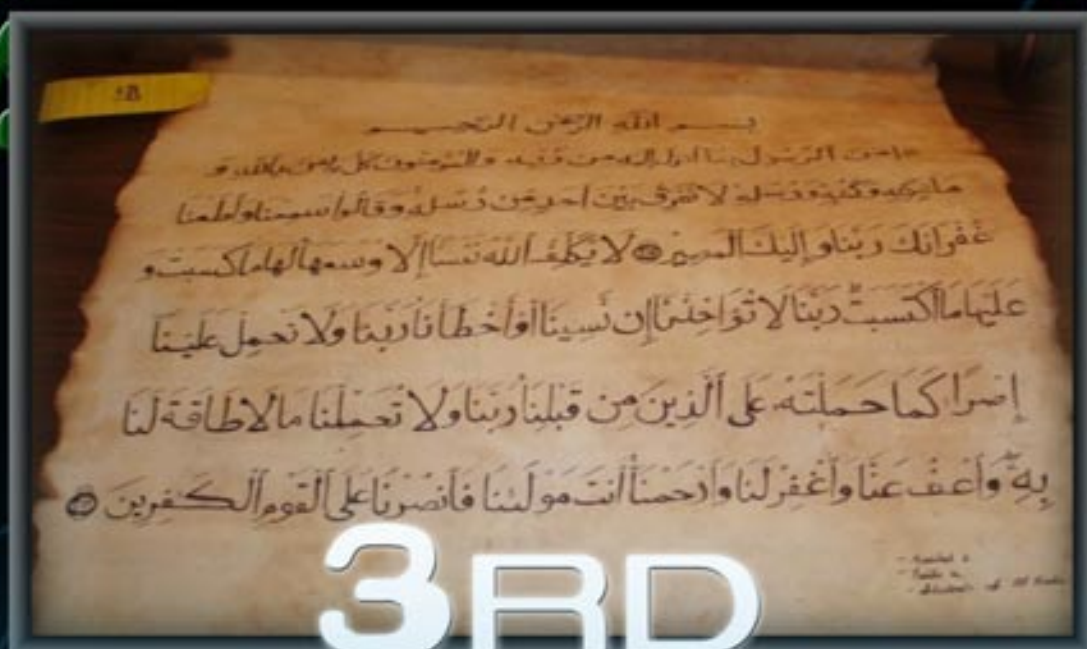 بسم الله الرحمن الرحيم
ءامن الرسول بما أنزل إليه من ربه والمؤمنون كل ءامن بالله و
ملئكته وكتبه ورسله لا نفرق بين أحد من رسله وقالوا سمعنا وأطعنا
غفرانك ربنا وإليك المصير لا يكلف الله نفسا إلا وسعها لها ما كسبت و
عليها ما اكتسبت ربنا لا تؤاخذنا إن نسينا أو أخطأنا ربنا ولا تحمل علينا
إصرا كما حملته على الذين من قبلنا ربنا ولا تحملنا ما لا طاقة لنا
به وأعف عنا وأغفر لنا وأرحمنا أنت مولىنا فأنصرنا على القوم الكفرين
3RD